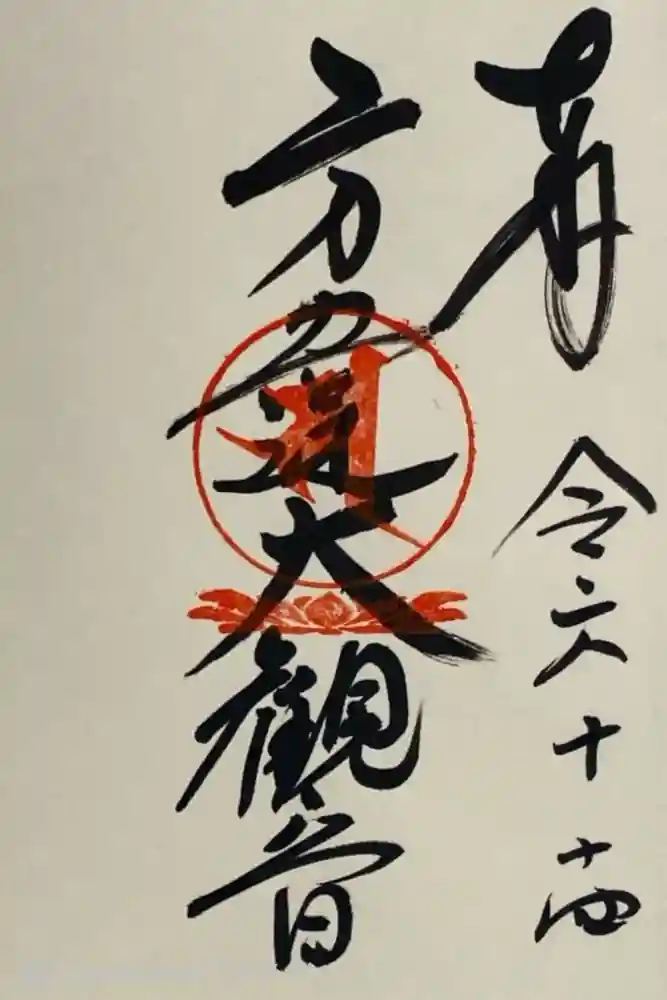 奉
令六 十 十四
方
大観音